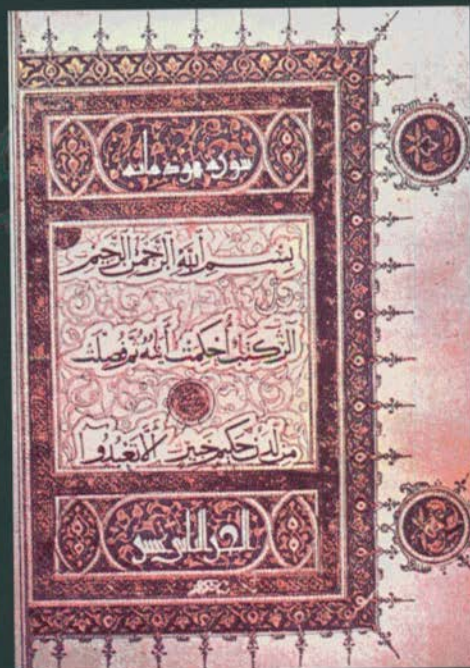 سورة هود مائة
بِسْمِ اللَّهِ الرَّحْمَنِ الرَّحِيمِ
الر كتب أُحكمت آيته ثم فصلت
من لدن حكيم خبير ألا تعبدوا